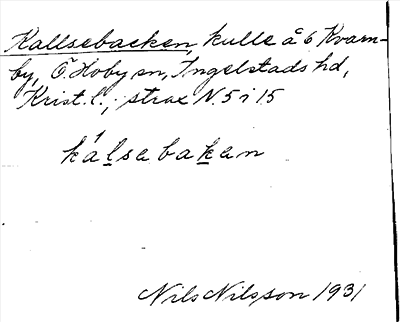 Kallsebacken, kulle å 6 Kvarn-
by, Ö. Hoby sn, Ingelstads hd,
Krist. l., strax N 5 i 15
kálsebaken
Nils Nilsson 1931